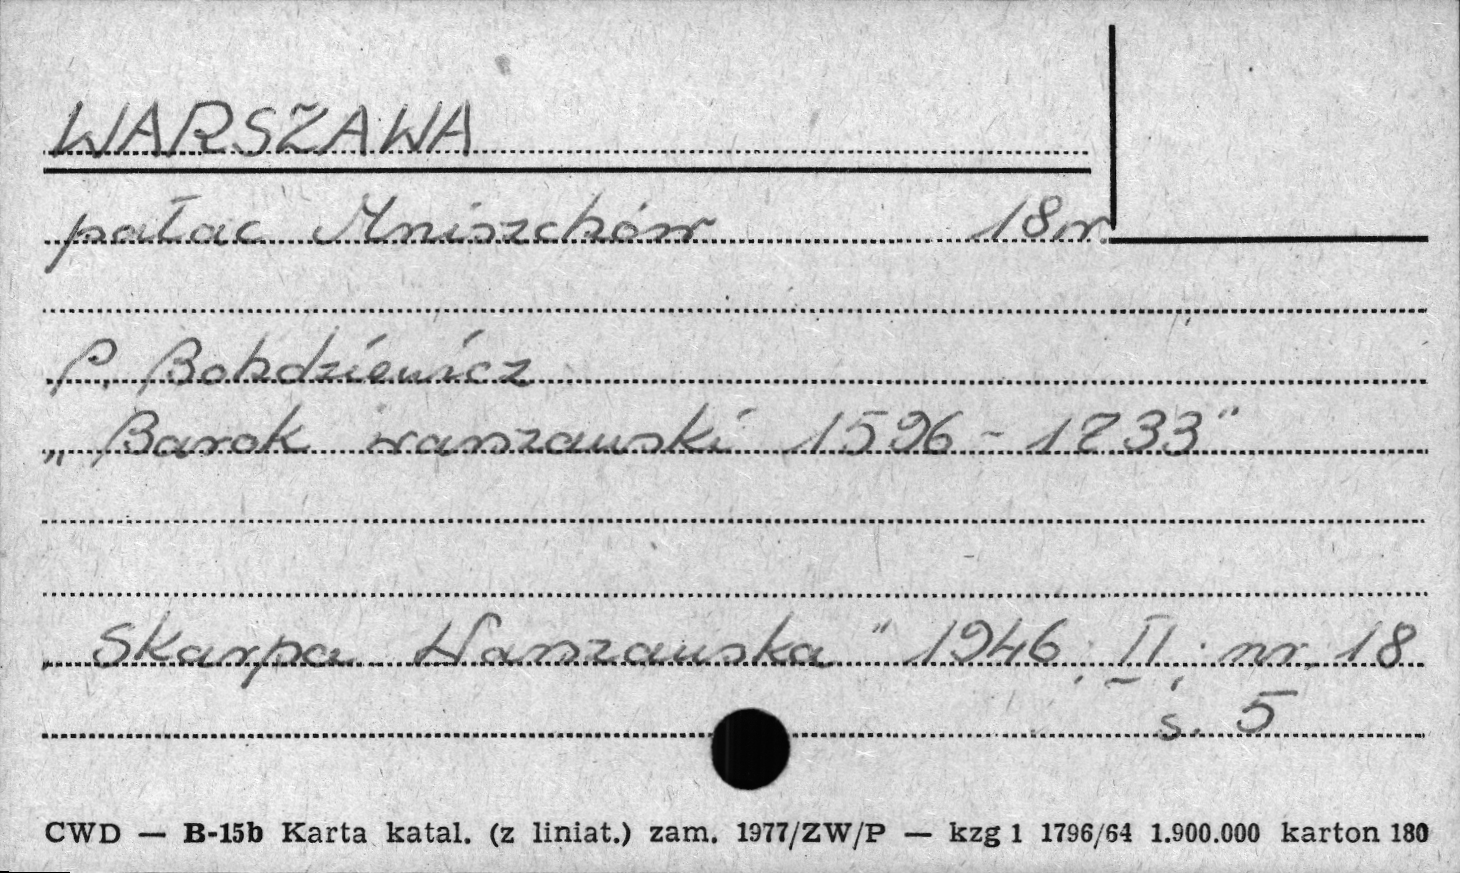 WARSZAWA
pałac Mniszchów 18w
P. Bohdziewicz
„Barok warszawski 1596-1733"
„Skarpa Warszawska" 1946, II, nr. 18
s. 5
CWD — B-15b Karta katal. (z liniat.) zam. 1977/ZW/P — kzg 1 1796/64 1.900.000 karton 180